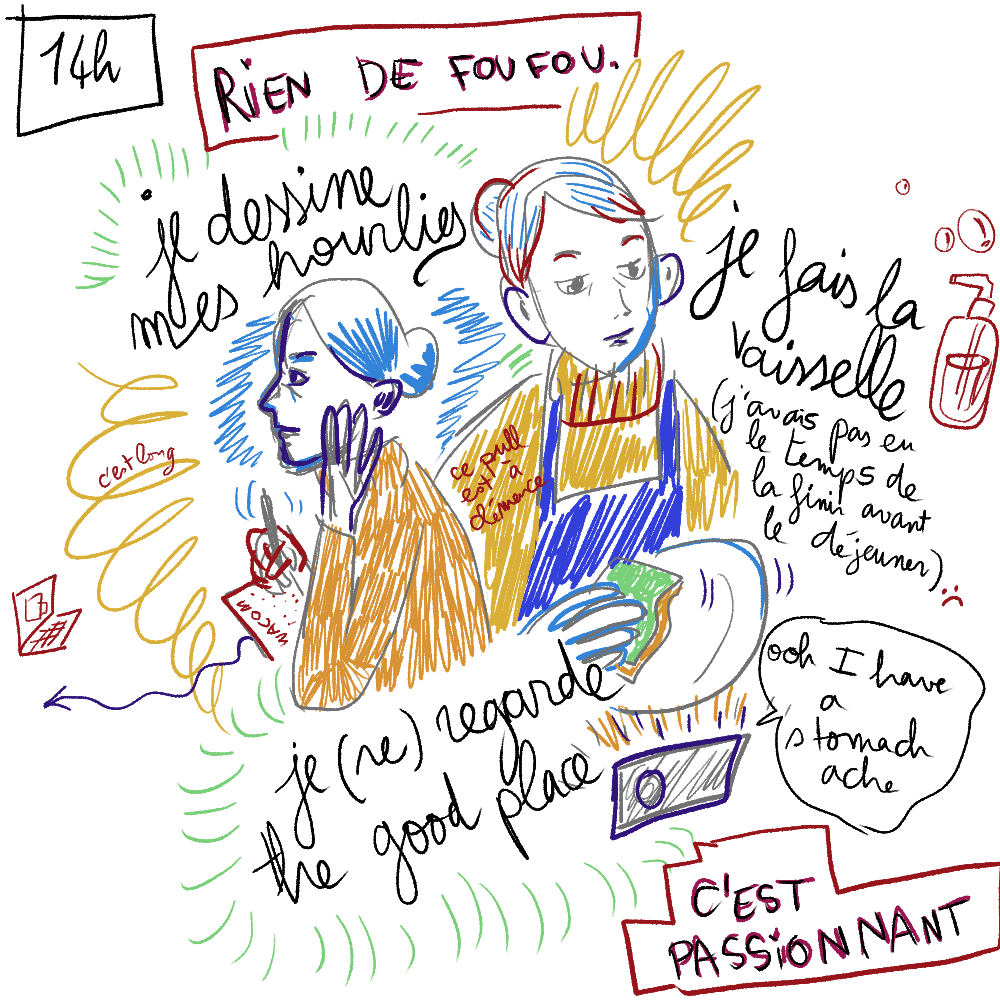 14h
RIEN DE FOUFOU.
je dessine
mes hourlies
je fais la
vaisselle
(j'avais pas eu
le temps de
la finir avant
le déjeuner) :(
c'est long
ce pull
est à
démence
WACOM
je (re) regarde
the good place
ooh I have
a
stomach
ache
C'EST
PASSIONNANT